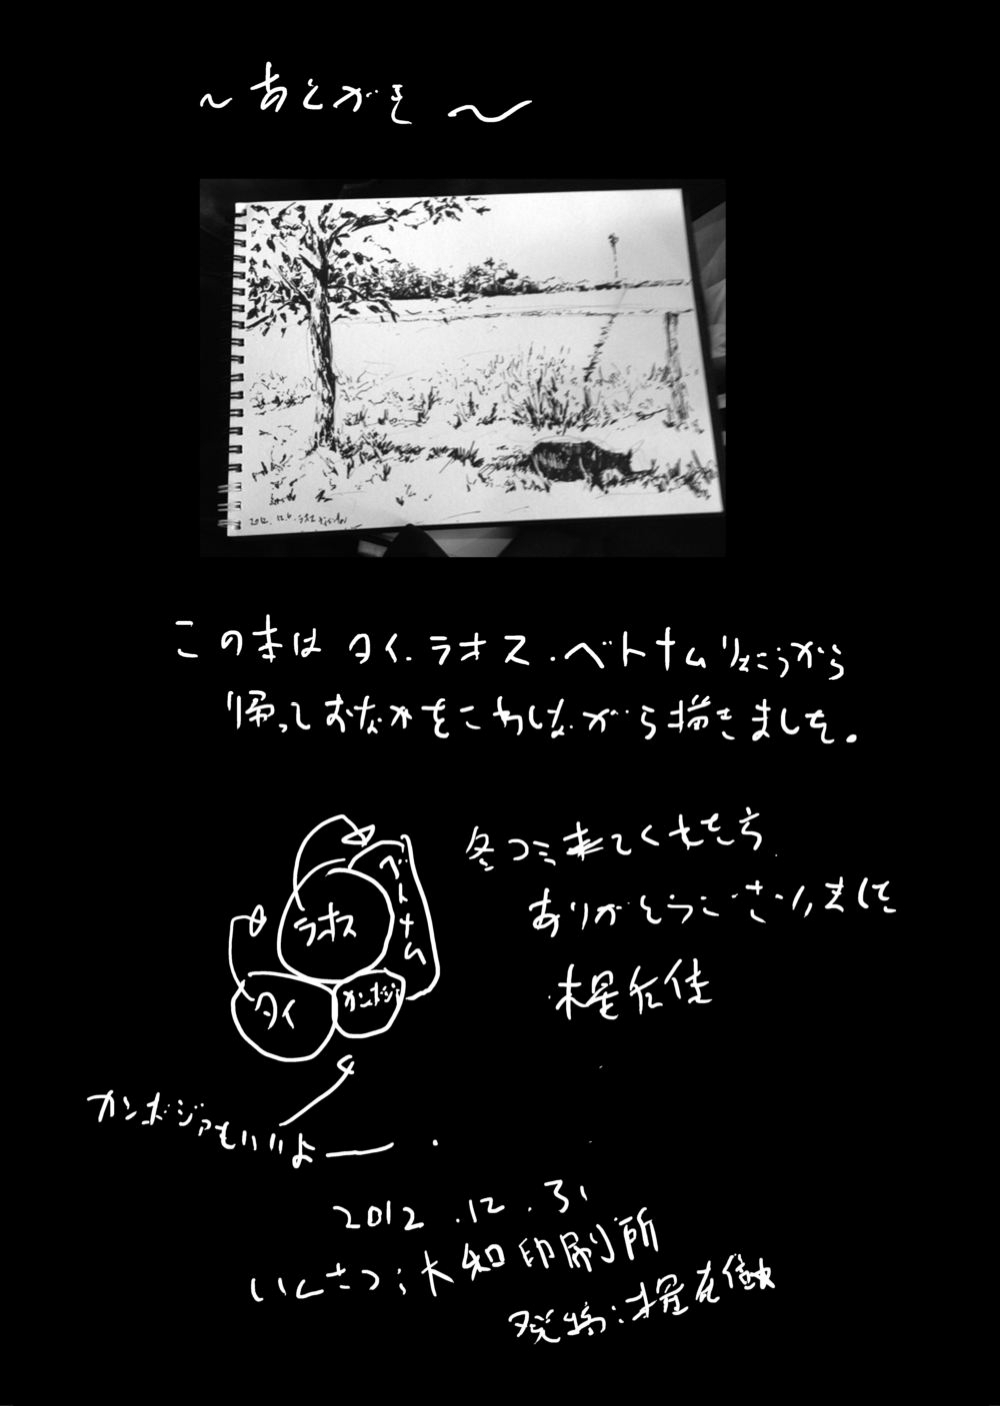 ～あとがき～
2012.12.6.ラオス
この本はタイ.ラオス.ベトナムりょこうから
帰っておなかをこわしながら描きました。
冬コミ来てくれた方
ありがとうございました
木星在住
ラオス
ベトナム
タイ
カンボジア
カンボジアもいいよー.
2012.12.31
いんさつ:大知印刷所
発搞:木星在住